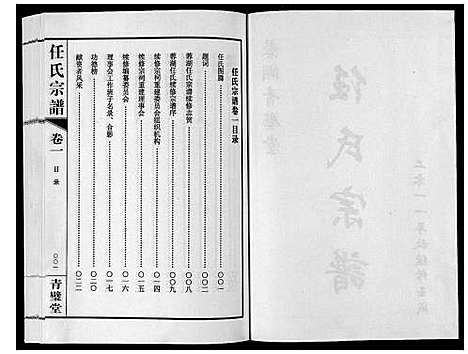 任氏宗谱卷一目录
任氏图腾 〇〇一
题词 〇〇二
蓉湖任氏宗谱续修志贺 〇〇八
蓉湖任氏续修宗谱序 〇〇九
续修宗祠重建委员会组织机构 〇一四
续修宗祠重建理事会 〇一五
续修编纂委员会 〇一六
理事会工作班子名录、合影 〇一七
功德榜 〇二〇
献资者风采 〇二二
任氏宗谱
卷一
目录
〇〇一
青璧堂
任氏宗谱